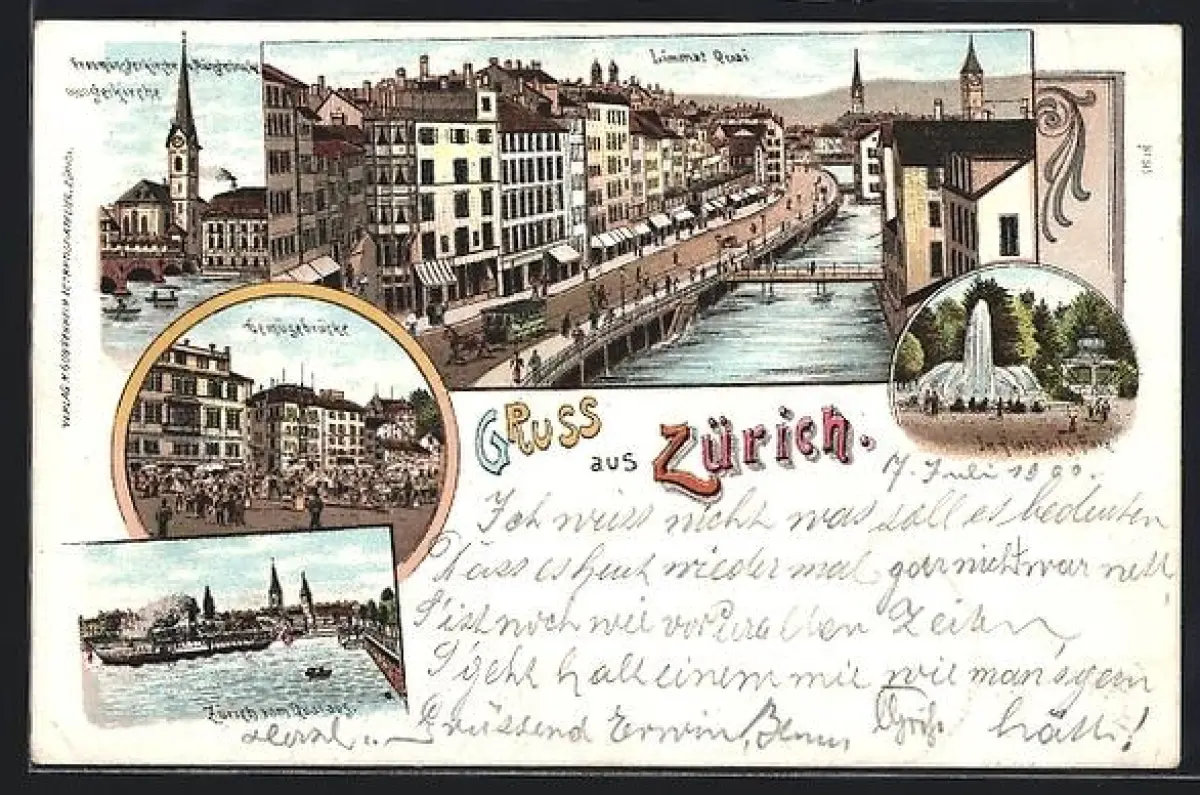 Fraumünsterkirche
Limmat Quai
Gemüsebrücke
Gruss
aus Zürich.
7. Juli 1900.
Ich weiss nicht was soll es bedeuten
Dass es heut wieder mal gar nicht war nett
S'ist noch wie vor uralten Zeiten
S'geht halt einem nie wie man's gern
hätt!
Herzl. Grüssend Erwin,
Zürich vom Quai aus.